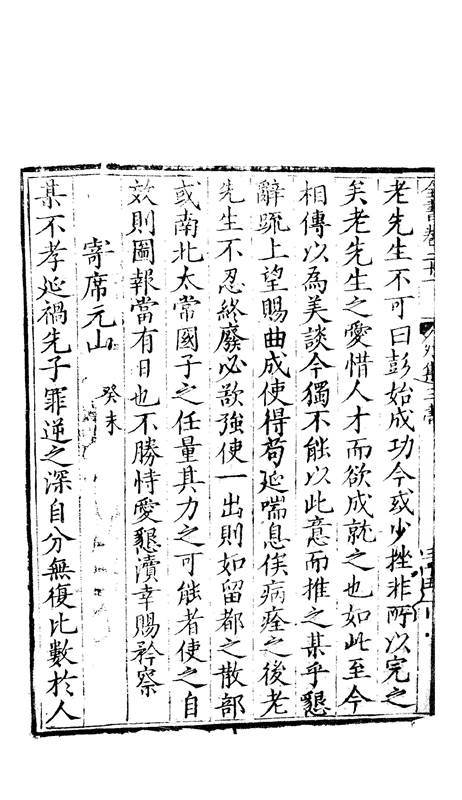 老先生不可曰彭始成功今或少挫非所以完之
矣老先生之愛惜人才而欲成就之也如此至今
相傳以為美談今獨不能以此意而推之某乎懇
辭疏上望賜曲成使得苟延喘息俟病痊之後老
先生不忍終廢必欲強使一出則如留都之散部
或南北太常國子之任量其力之可能者使之自
效則圖報當有日也不勝恃愛懇瀆幸賜矜察
寄席元山 癸未
某不孝延禍先子罪逆之深自分無復比數於人